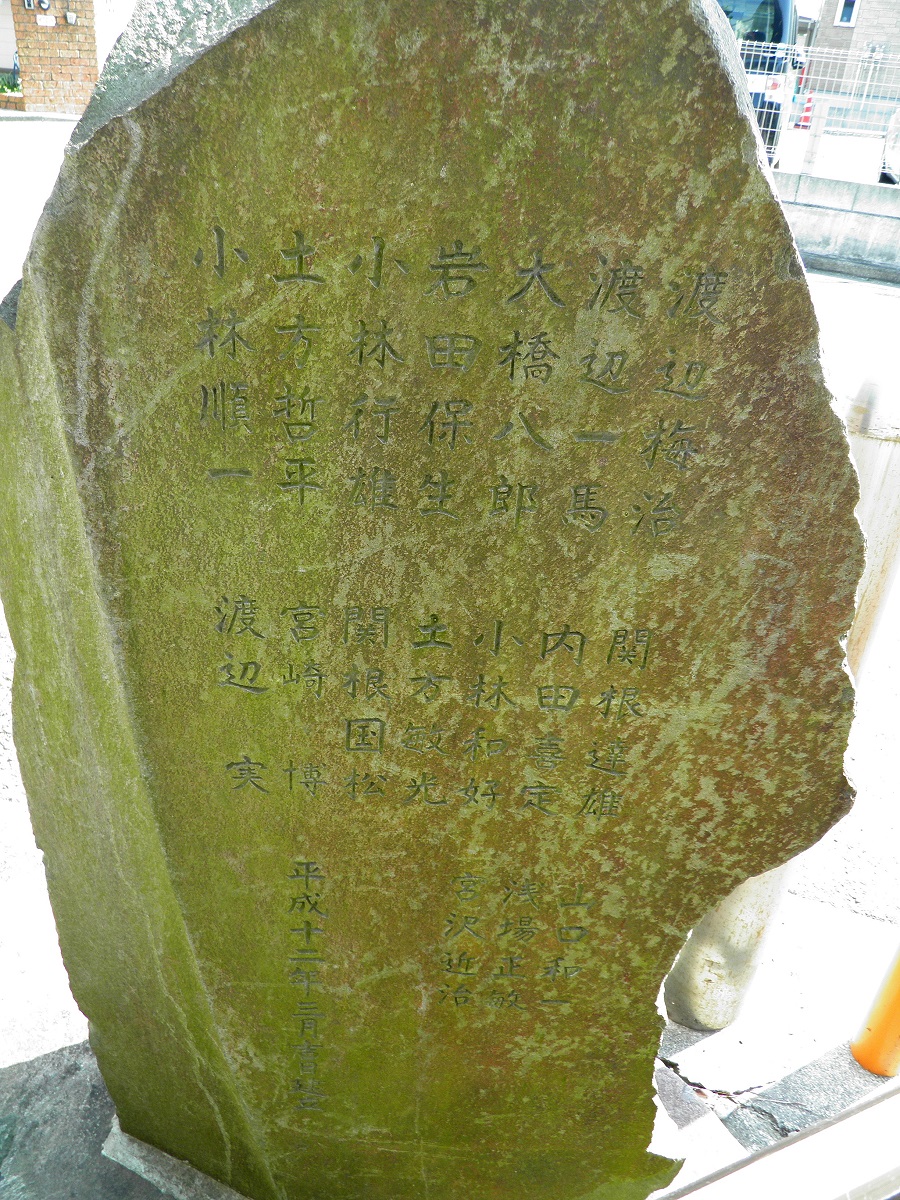 渡辺梅治
渡辺一馬
大橋八郎
岩田保生
小林行雄
土方哲平
小林順一
関根達雄
内田喜定
小林和好
土方敏光
関根国松
宮崎博
渡辺実
山口和一
浅場正敏
宮沢近治
平成十二年三月吉